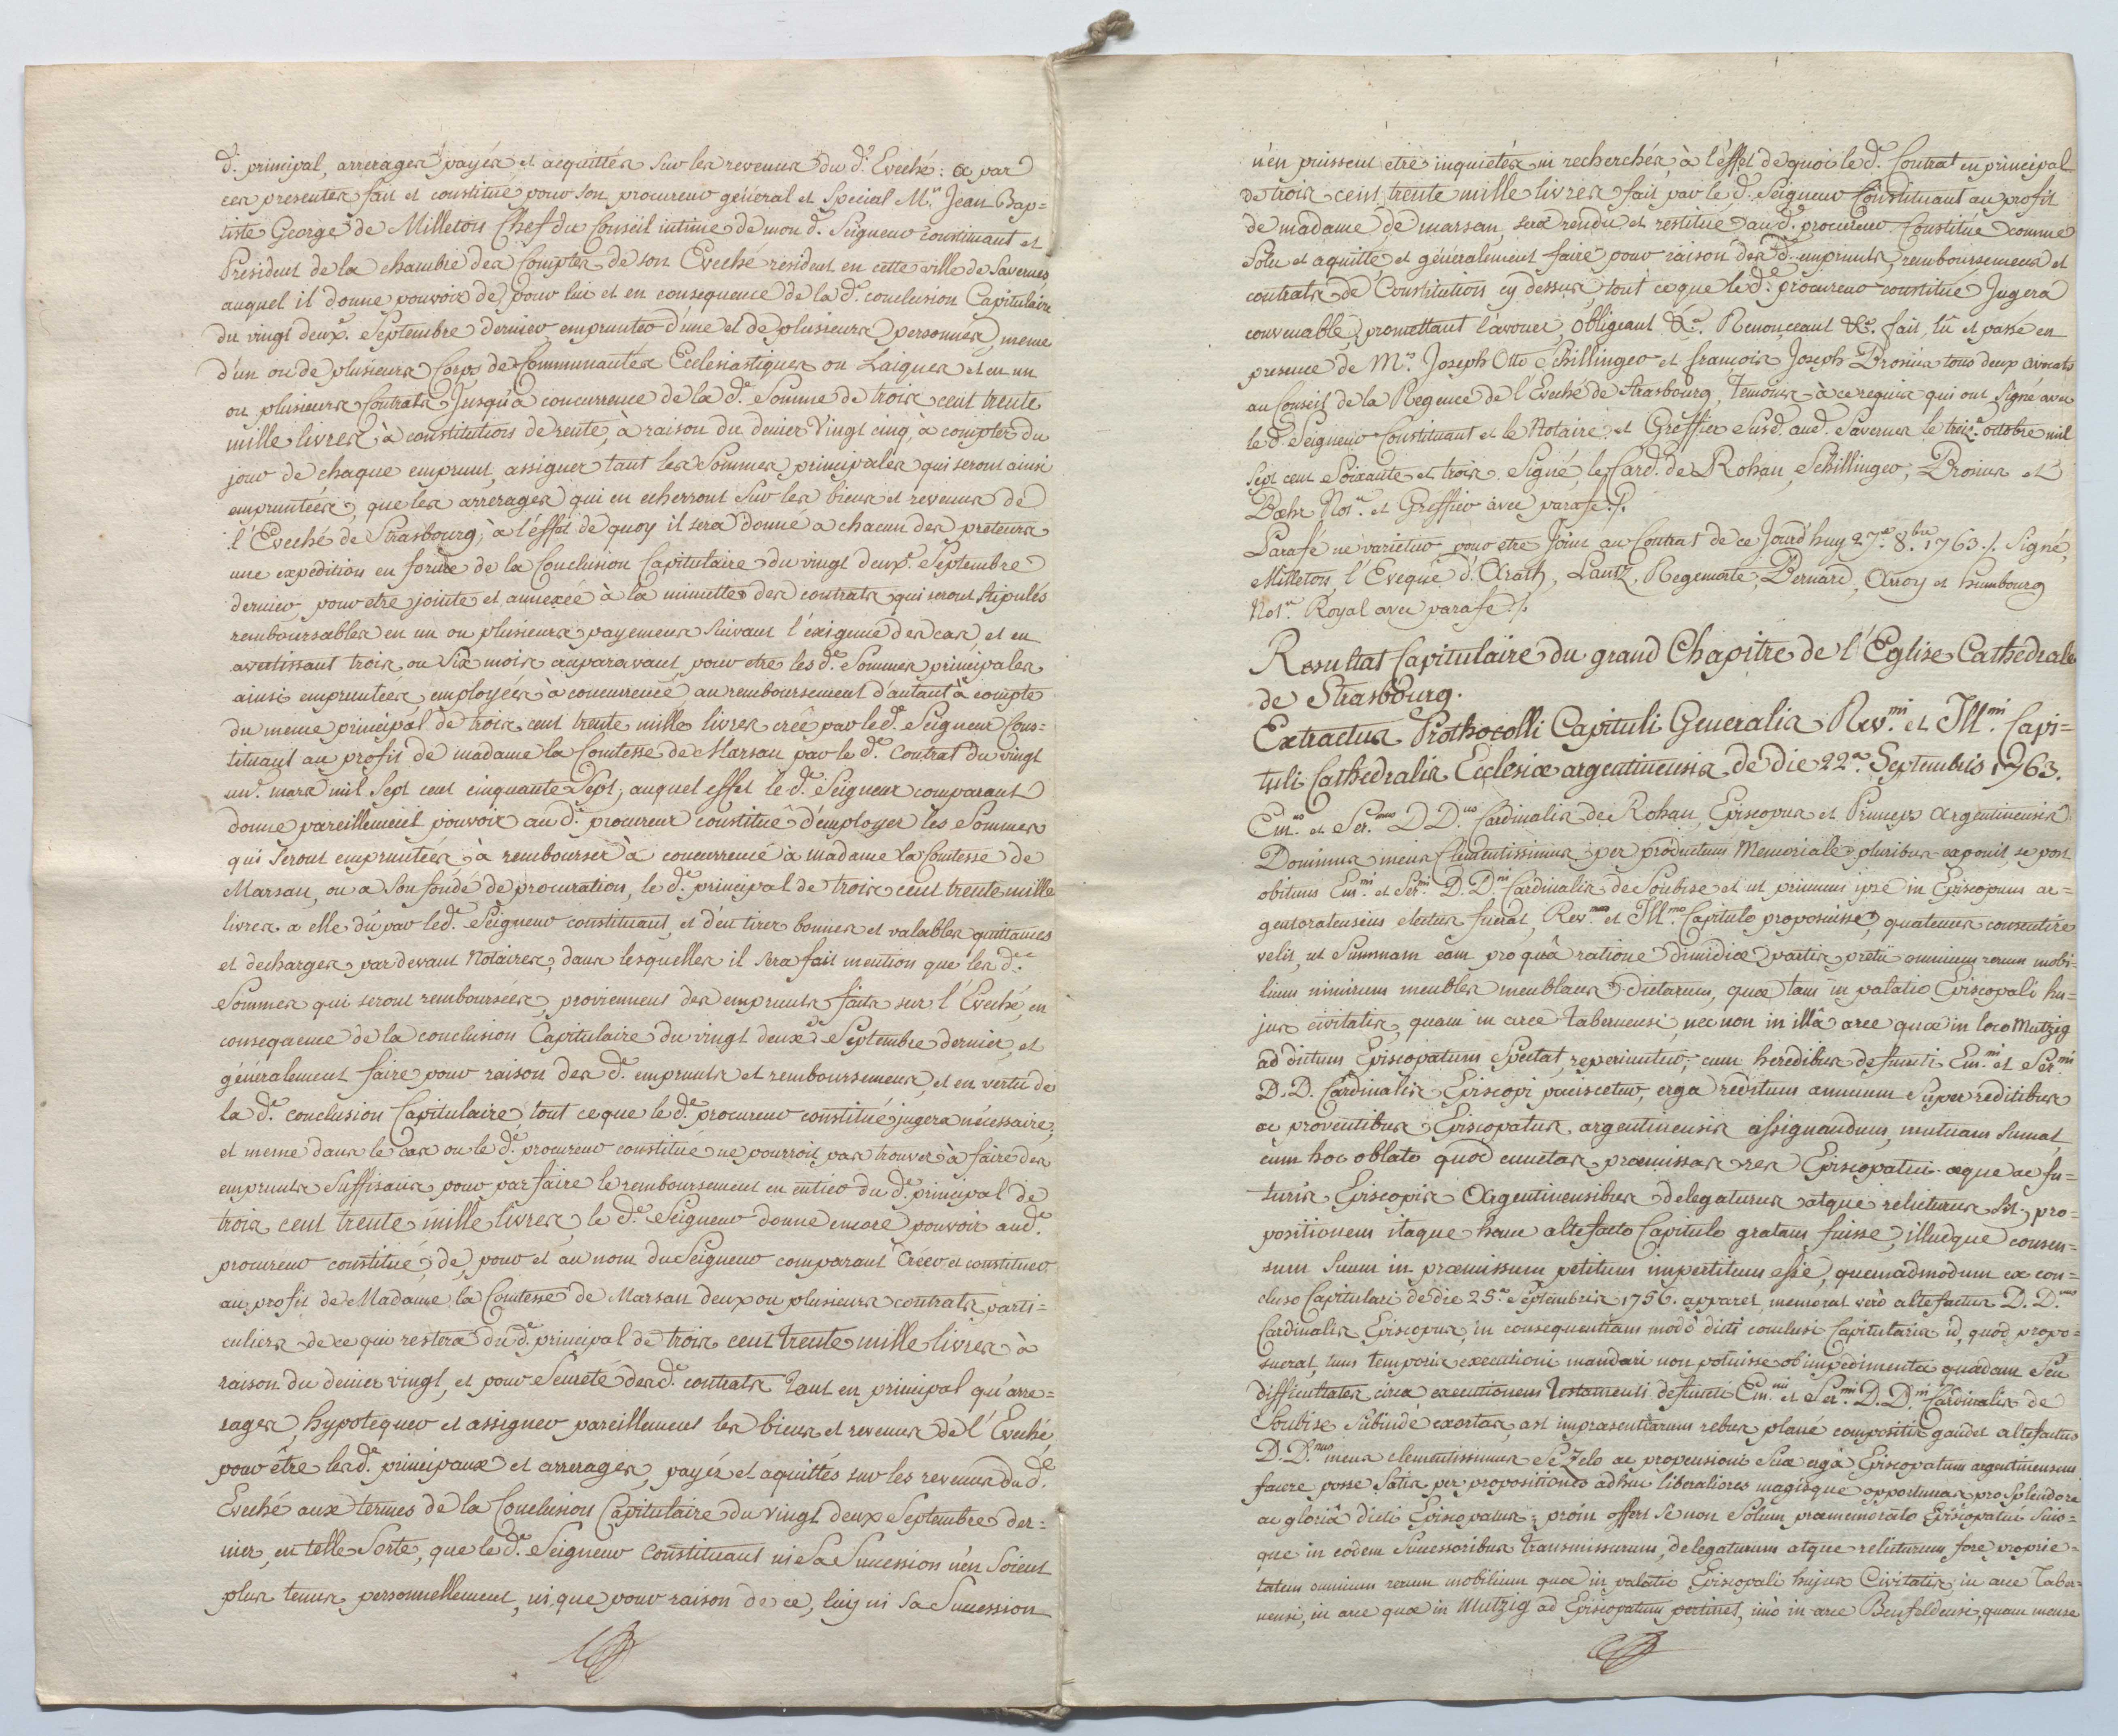 d. principal, arrerages payés et acquittés sur les revenus du d. Eveché: & par
ces presentes fait et constitue pour son procureur général et Special Mr. Jean Bap=
tiste George de Milletois Chef du Conseil intime de mon d. Seigneur constituant et
President de la chambre des Comptes de son Eveché résident en cette ville de Savernes
auquel il donne pouvoir de, pour lui et en consequence de la de. conclusion Capitulaire
du vingt deuxe. Septembre dernier, emprunter d'une et de plusieurs personnes, meme
d'un ou de plusieurs Corps de Communautés Ecclesiastiques ou Laiques et en un
ou plusieurs Contrats, Jusqu'à concurrence de la de. Somme de trois cent trente
mille livres à constitution de rente, à raison du denier Vingt cinq, à compter du
jour de chaque emprunt, assigner tant les Sommes principales qui seront ainsi
empruntées, que les arrerages qui en écherront sur les biens et revenus de
l'Eveché de Strasbourg; à l'éffet de quoy il sera donné a chacun des preteurs
une expedition en forme de la Conclusion Capitulaire du vingt deuxe. Septembre
dernier, pour etre jointe et annexée à la minutte des contrats qui seront stipulés
remboursables en un ou plusieurs payemens suivant l'éxigence des cas, et en
avertissant trois ou Six mois auparavant, pour etre lesd. Sommes principales
ainsi empruntées employées à concurrence au remboursement d'autant à compte
du meme principal de trois cent trente mille livres créé par led. Seigneur Cons=
tituant au profit de madame la Comtesse de Marsan par le d. Contrat du vingt
un. mars mil Sept cent cinquante Sept; auquel effet le d. Seigneur comparant
donne pareillement pouvoir au d. procureur constitué d'employer les Sommes
qui Seront empruntées, à rembourser à concurrence à Madame la Comtesse de
Marsan, ou a son fondé de procuration, le d. principal de trois cent trente mille
livres a elle dû par led. Seigneur constituant, et d'en tirer bonnes et valables quittances
et decharges par devant Notaires, dans lesquelles il sera fait mention que les d.
Sommes qui seront remboursées, proviennent des emprunts faits sur l'Eveché en
consequence de la conclusion Capitulaire du vingt deuxe. Septembre dernier, et
généralement faire pour raison des d. emprunts et remboursemens, et en vertu de
la de. conclusion Capitulaire, tout ce que le d. procureur constitué jugera nécessaire;
et meme dans le cas ou le d. procureur constitue ne pourroit pas trouver à faire des
emprunts Suffisans pour parfaire le remboursement en entier du d. principal de
trois cent trente mille livres, le d. Seigneur donne encore pouvoir aud.
procureur constitué, de, pour et au nom du Seigneur comparant Créer et constituer
au profit de Madame la Comtesse de Marsan deux ou plusieurs contrats parti=
culiers de ce qui restera du d. principal de trois cent trente mille livres à
raison du denier vingt, et pour Seureté desd. contrats tant en principal qu'arre=
rages, hypotequer et assigner pareillement les biens et revenus de l'Eveché
pour être lesd. principaux et arrerages, payés et aquittés sur les revenus du d.
Eveché aux termes de la Conclusion Capitulaire du Vingt deux Septembre der=
nier, en telle Sorte, que le d. Seigneur Constituant ni Sa Succession n'en Soient
plus tenus personnellement, ni que pour raison de ce, luy ni Sa Succession
n'en puissent etre inquietés ni recherchés, à l'éffet de quoi le d. Contrat en principal
de trois cent trente mille livres fait par le d. Seigneur Constituant au profit
de madame de marsan, sera rendu et restitué aud. procureur Constitué comme
Solu et aquitté et généralement faire pour raison des d. emprunts, remboursemens et
contrats de Constitution cy dessus, tout ce que le d. procureur constitué Jugera
convenable, promettant l'avouer, Obligeant &a. Renonçant &a. fait, lû et passé en
presence de Mrs. Joseph Otto Schillinger et francois Joseph Brosius tous deux avocats
au Conseil de la Regence de l'Eveché de Strasbourg, Temoins à ce requis qui ont Signé avec
le d. Seigneur Constituant et le Notaire et Greffier Susd. aud. Saverne le treize. octobre mil
Sept cent Soixante et trois. Signé, le Card. de Rohan, Schillinger, Brosius et
Bœhr Nore. et Greffier avec parafe ./.
Parafé ne varietur, pour etre Joint au Contrat de ce Jourd'huy 27e. 8bre. 1763 ./. Signé,
Milletois, l'Eveque d'Arath, Lantz, Regemorte, Bernard, Arroy et humbourg
Notre Royal avec parafe ./.
Resultat Capitulaire du grand Chapitre de l'Eglise Cathedrale
de Strasbourg.
Extractus Prothocolli Capituli Generalis Revmi. et Illmi. Capi=
tuli Cathedralis Ecclesiæ argentinensis de die 22a. Septembris 1763.
Emus. et Sermus D D.nus Cardinalis de Rohan, Episcopus et Princeps Argentinensis
Dominus meus Clementissimus per productum Memoriale pluribus exponit, se post
obitum Emi. et Sermi. D. D.ni Cardinalis de Soubise et ut primum ipse in Episcopum ar=
gentoratensium electus fuerat, Revmo et Illmo. Capitulo proposuisse, quatenus consentire
velit, ut Summam eam pro quâ ratione dimidiæ partis pretii omnium rerum mobi=
lium nimirum meubles meublans dictarum, quæ tam in palatio Episcopali hu=
jus civitatis, quam in arce Tabernensi, nec non in illâ arce quæ in loco Mutzig
ad dictum Episcopatum Spectat, reperiuntur, cum heredibus defuncti Emi. et Sermi
D. D. Cardinalis Episcopi paciscetur, erga reditum annuum Super reditibus
ac proventibus Episcopatus argentinensis assignandum, mutuam Sumat,
cum hoc oblato quod cunctas præmissas res Episcopatui æque ac fu=
turis Episcopis Argentinensibus delegaturus atque relicturus sit, pro=
positionem itaque hanc altefacto Capitulo gratam fuisse, illudque consen=
sum Suum in præmissum petitum impertitum esse, quemadmodum ex con=
cluso Capitulari de die 25a. Septembris 1756. apparet, memorat verò altefactus D. D.nus
Cardinalis Episcopus, in consequentiam modò dicti conclusi Capitularis id, quod propo=
suerat, tunc temporis executioni mandari non potuisse ob impedimenta quædam Seu
difficultates circa executionem testamenti defuncti Emi. et Sermi. D. D.ni Cardinalis de
Soubise Subinde exortas, ast impræsentiarum rebus planè compositis gaudet altefactus
D. D.nus meus clementissimus Se Zelo ac propensioni Suæ ergà Episcopatum argentinensem
facere posse Satis per propositiones adhuc liberaliores magisque opportunas pro Splendore
ac gloriâ dicti Episcopatus; proin offert Se non Solum præmemorato Episcopatui Suis=
que in eodem Successoribus Transmissurum, delegaturum atque relicturum fore proprie=
tatem omnium rerum mobilium quæ in palatio Episcopali hujus Civitatis, in arce Taber=
nensi, in arce quæ in Mutzig ad Episcopatum pertinet, imò in arce Benfeldensi, quam mense